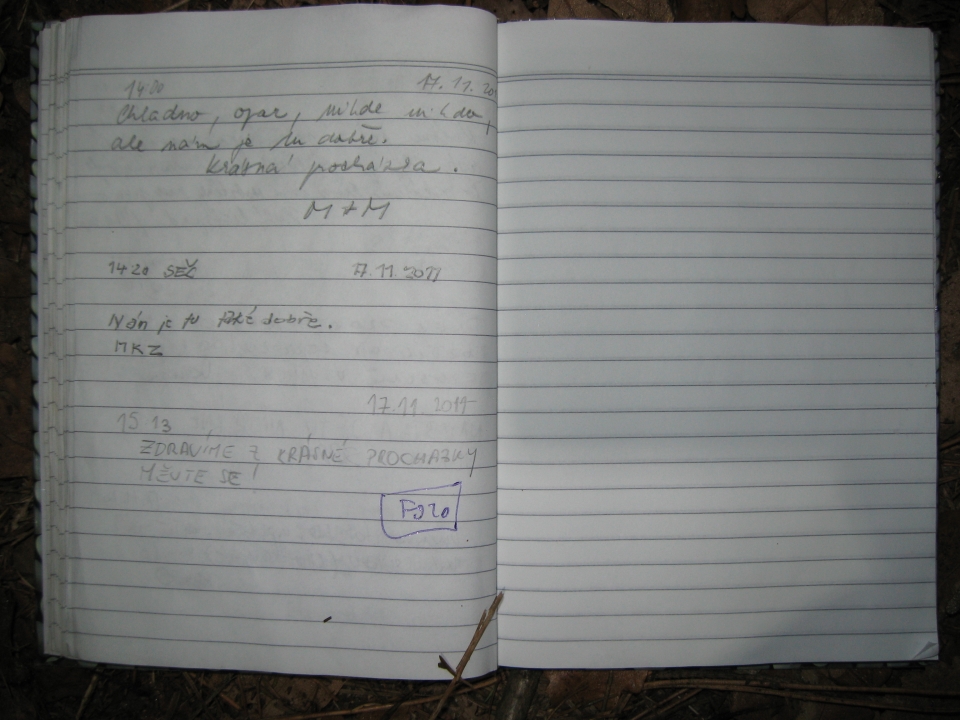 14:00 17.11.20
Chladno, opar, nikde nikdo,
ale nám je tu dobře.
Krásná procházka.
M + M
1420 SEČ 17.11.2011
Nám je tu také dobře.
MKZ
17.11 2011
15 13
ZDRAVÍME Z KRÁSNÉ PROCHAZKY
MĚJTE SE!